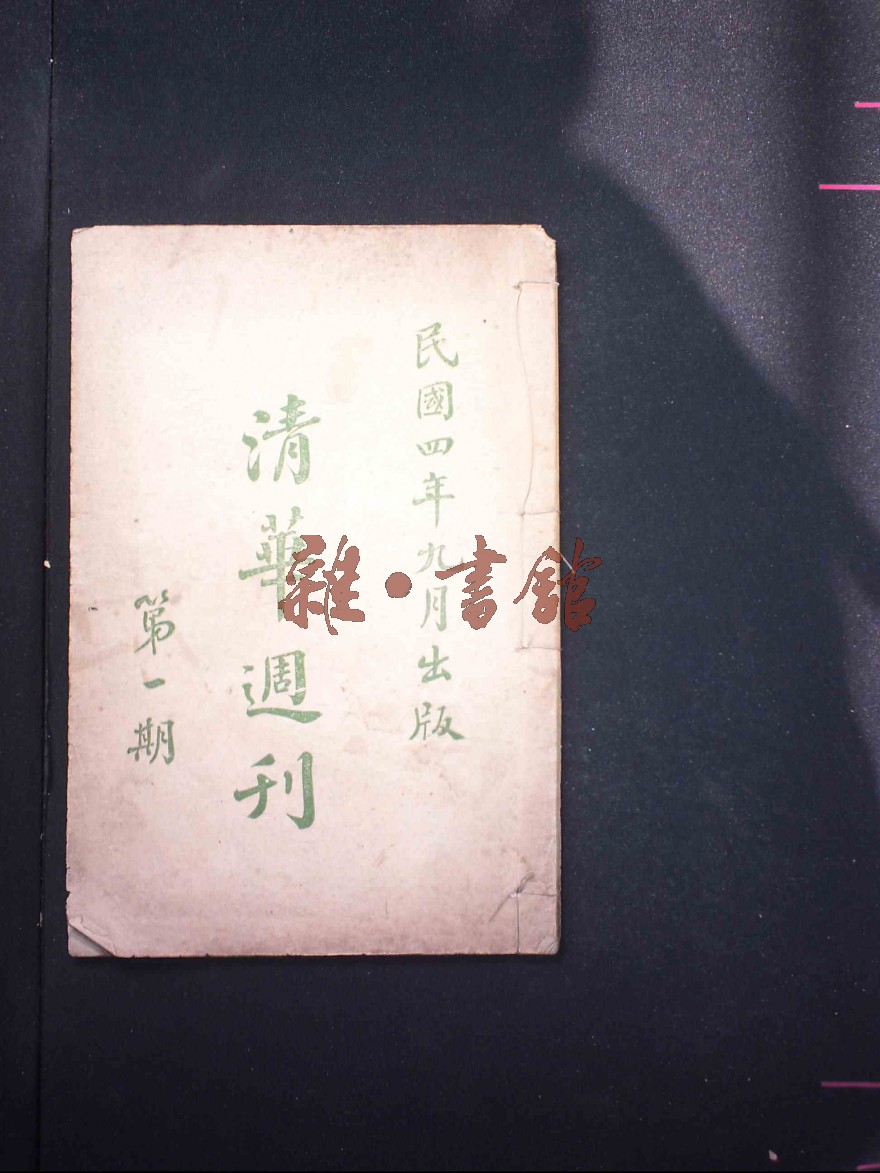 民國四年九月出版
清華週刊
第一期
雜·書館